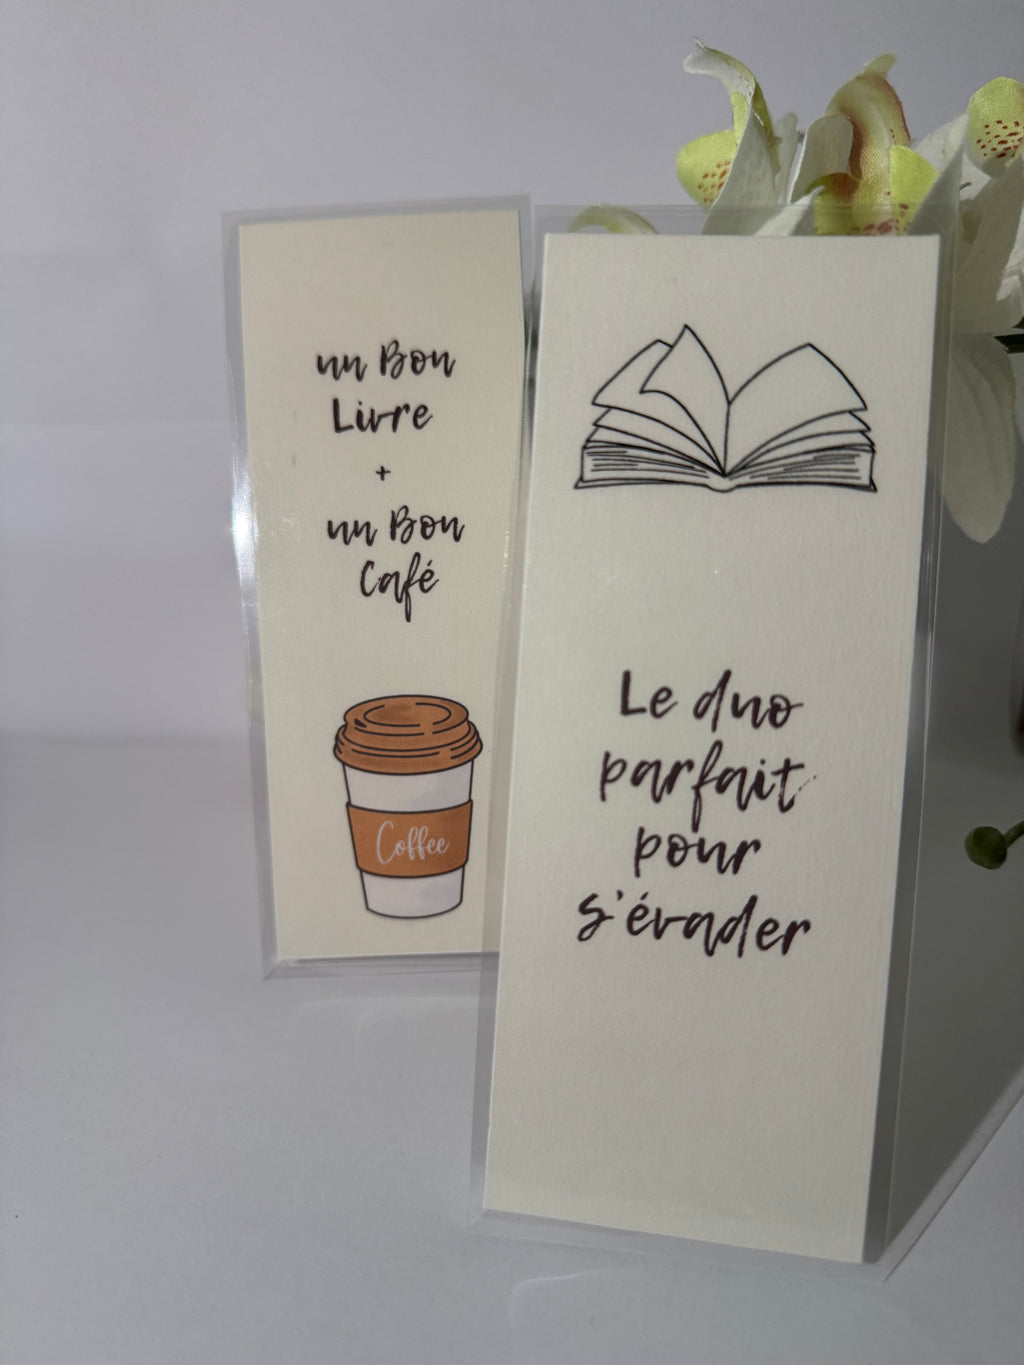 un Bon
Livre
+
un Bon
Café
Coffee
Le duo
parfait
pour
s'évader